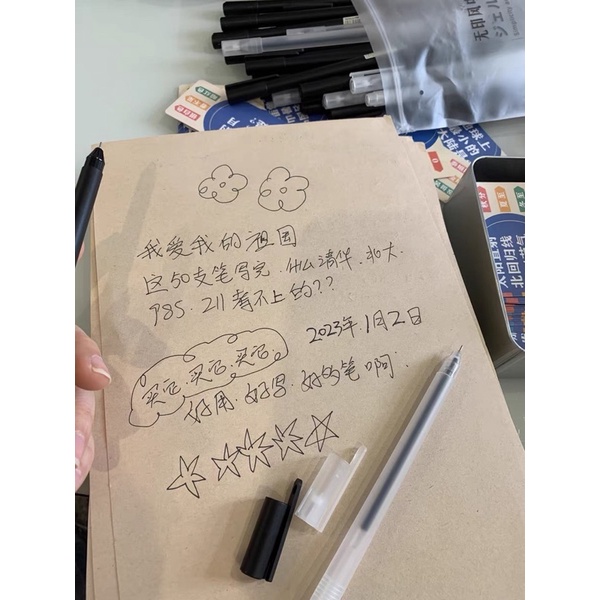 无印风
ジェル
我爱我的祖国
这50支笔写完.什么清华.北大.
985.211考不上的??
2023年.1月2日
买它.买它.买它.
好用.好写.好的笔啊.
球上
小的
大陆是
太阳直射
北回归线
节气